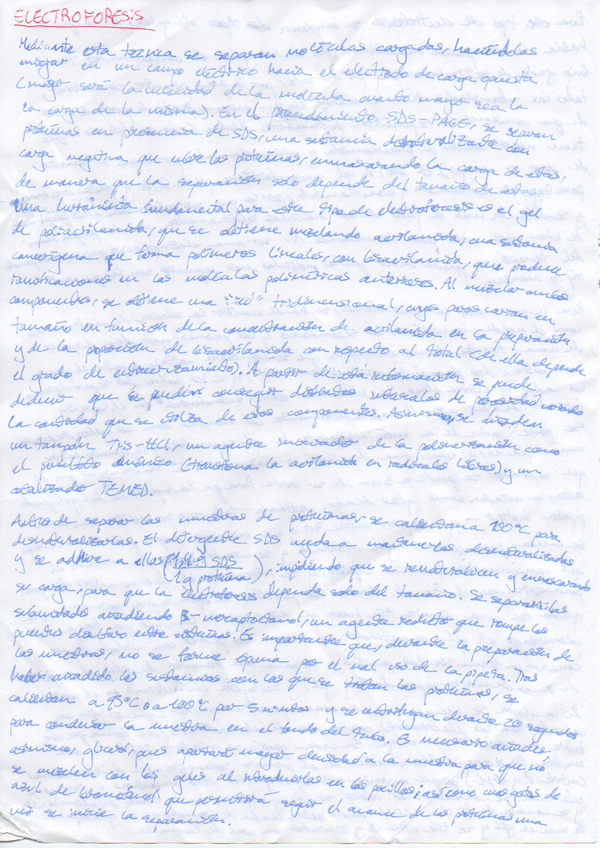 ELECTROFORESIS
Mediante esta técnica se separan moléculas cargadas, haciéndolas
migrar en un campo eléctrico hacia el electrodo de carga opuesta
(mayor será la velocidad de la molécula cuanto mayor sea la
la carga de la misma). En el procedimiento SDS-PAGE, se separan
proteínas en presencia de SDS, una sustancia desnaturalizante con
carga negativa que cubre las proteínas, enmascarando la carga de estas,
de manera que la separación solo depende del tamaño de
Una herramienta fundamental para este tipo de electroforesis es el gel
de poliacrilamida, que se obtiene mezclando acrilamida, una sustancia
cancerígena que forma polímeros lineales, con bisacrilamida, que produce
ramificaciones en las moléculas poliméricas anteriores. Al mezclar ambos
componentes, se obtiene una "red" tridimensional, cuyos poros varían en
tamaño en función de la concentración de acrilamida en la preparación
y de la proporción de bisacrilamida con respecto al total (de ella depende
el grado de entrecruzamiento). A partir de esta información se puede
deducir que se pueden conseguir distintos intervalos de porosidad variando
la cantidad que se utiliza de estos componentes. Asimismo, se añaden
un tampón Tris-HCl, un agente iniciador de la polimerización como
el persulfato amónico (transforma la acrilamida en radicales libres) y un
catalizador TEMED.
Antes de separar las muestras de proteínas, se calientan a 100°C para
desnaturalizarlas. El detergente SDS ayuda a mantenerlas desnaturalizadas
y se adhiere a ellas (1,4 g SDS / 1 g proteína), impidiendo que se renaturalicen y enmascarando
su carga, para que la electroforesis dependa solo del tamaño. Se separan las
subunidades añadiendo β-mercaptoetanol, un agente reductor que rompe los
puentes disulfuro entre cisteínas. Es importante que, durante la preparación de
las muestras, no se forme espuma por el mal uso de la pipeta. Tras
haber añadido las sustancias con las que se tratan las proteínas, se
calientan a 95°C o a 100°C por 5 minutos y se centrifugan durante 20 segundos
para condensar la muestra en el fondo del tubo. Es necesario añadir
asimismo, glicerol, pues aportará mayor densidad a la muestra para que no
se mezclen con los geles al introducirlas en los pocillos; así como unas gotas de
azul de bromofenol, que permitirá seguir el avance de las proteínas una
vez se inicie la separación.